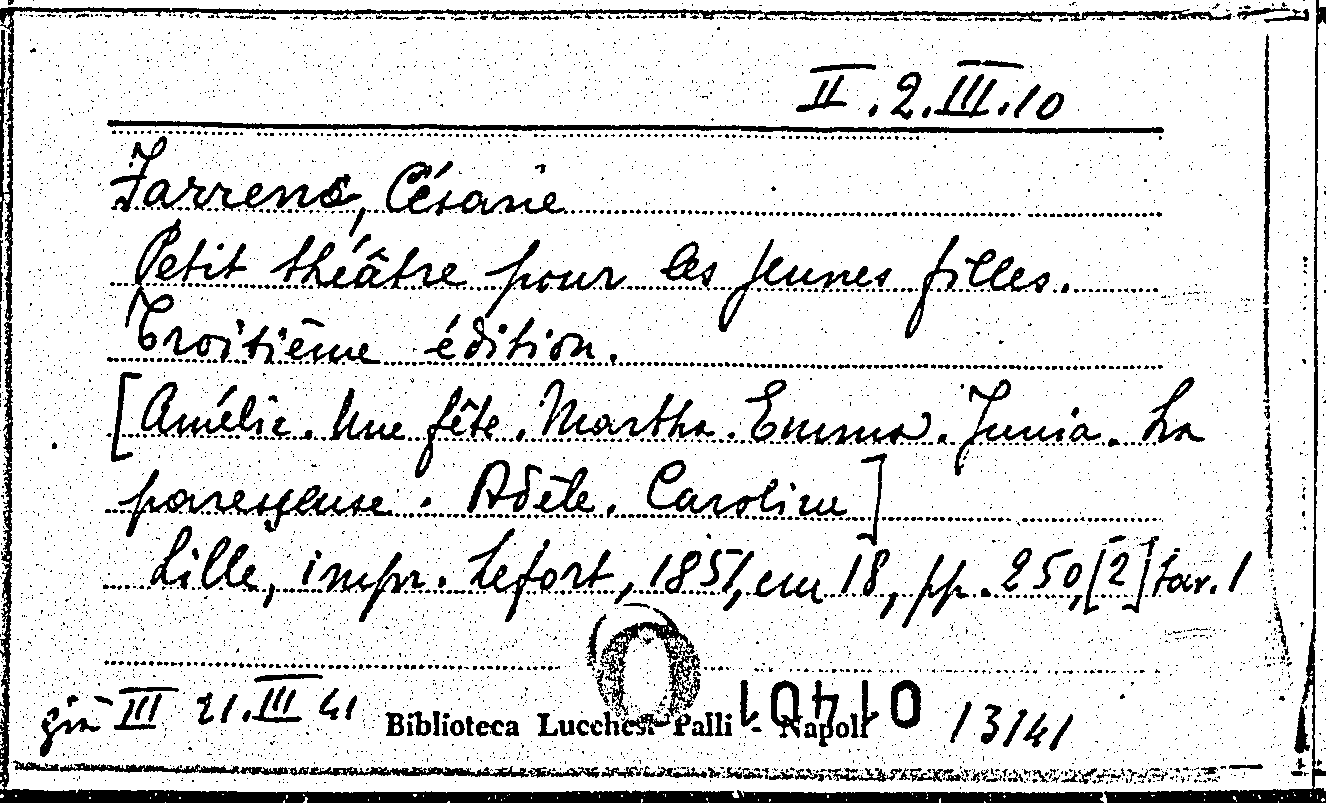 II.2.III.10
Farrenc, Césarie
Petit théâtre pour les jeunes filles.
Troisième édition.
[Amélie. Une fête. Martha. Emma. Junia. La
paresseuse. Adèle. Caroline]
Lille, impr. Lefort, 1851, cm 18, pp. 250, [2] tav. 1
già III 21.III 41 Biblioteca Lucchesi Palli - Napoli 13141
01401